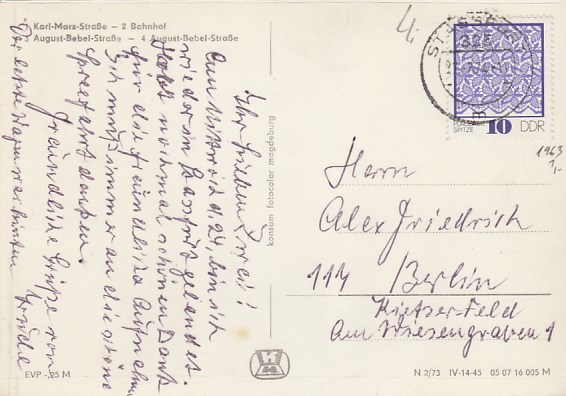 Karl-Marx-Straße – 2 Bahnhof
3 August-Bebel-Straße – 4 August-Bebel-Straße
Ihr lieben Zwei!
Am Mittwoch d. 24. bin ich
wieder in gelandet.
Habt nochmal schönen Dank
für die freundliche Aufnahme
Ich muß immer an die schöne
Spreefahrt denken.
Freundliche Grüße von
Der letzte Tag war
konsum fotocolor magdeburg
4.
DDR
10
SPITZE
1963
1,-
Herrn
Alex Friedrich
114 Berlin
Kietzer-Feld
Am Wiesengraben 1
EVP -,25 M
N 2/73 IV-14-45 05 07 16 005 M